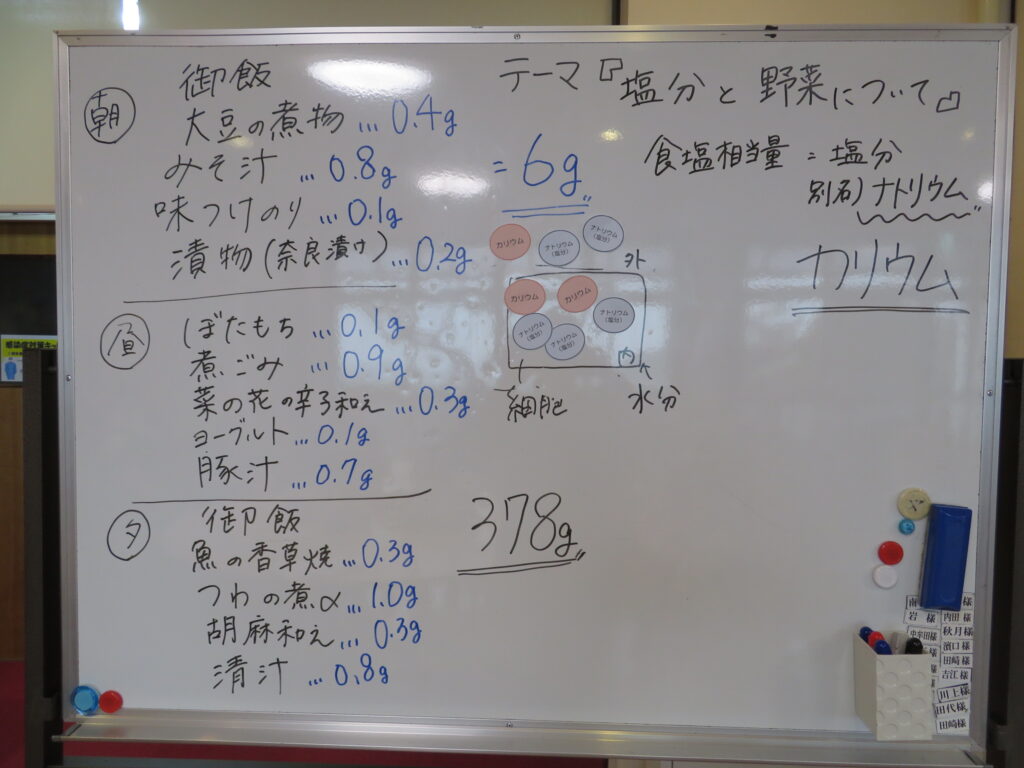 朝
御飯
大豆の煮物 … 0.4g
みそ汁 … 0.8g
味つけのり … 0.1g
漬物(奈良漬け) … 0.2g
昼
ぼたもち … 0.1g
煮ごみ … 0.9g
菜の花の辛子和え … 0.3g
ヨーグルト … 0.1g
豚汁 … 0.7g
夕
御飯
魚の香草焼 … 0.3g
つわの煮〆 … 1.0g
胡麻和え … 0.3g
清汁 … 0.8g
テーマ『塩分と野菜について』
= 6g
食塩相当量 = 塩分
別名)ナトリウム
カリウム
カリウム
ナトリウム
(塩分)
ナトリウム
(塩分)
外
カリウム
カリウム
ナトリウム
(塩分)
ナトリウム
(塩分)
ナトリウム
(塩分)
内
細胞
水分
378g
岩 様
内田 様
秋月様
濱口様
田﨑様
吉江様
川上様
田代様
田崎様